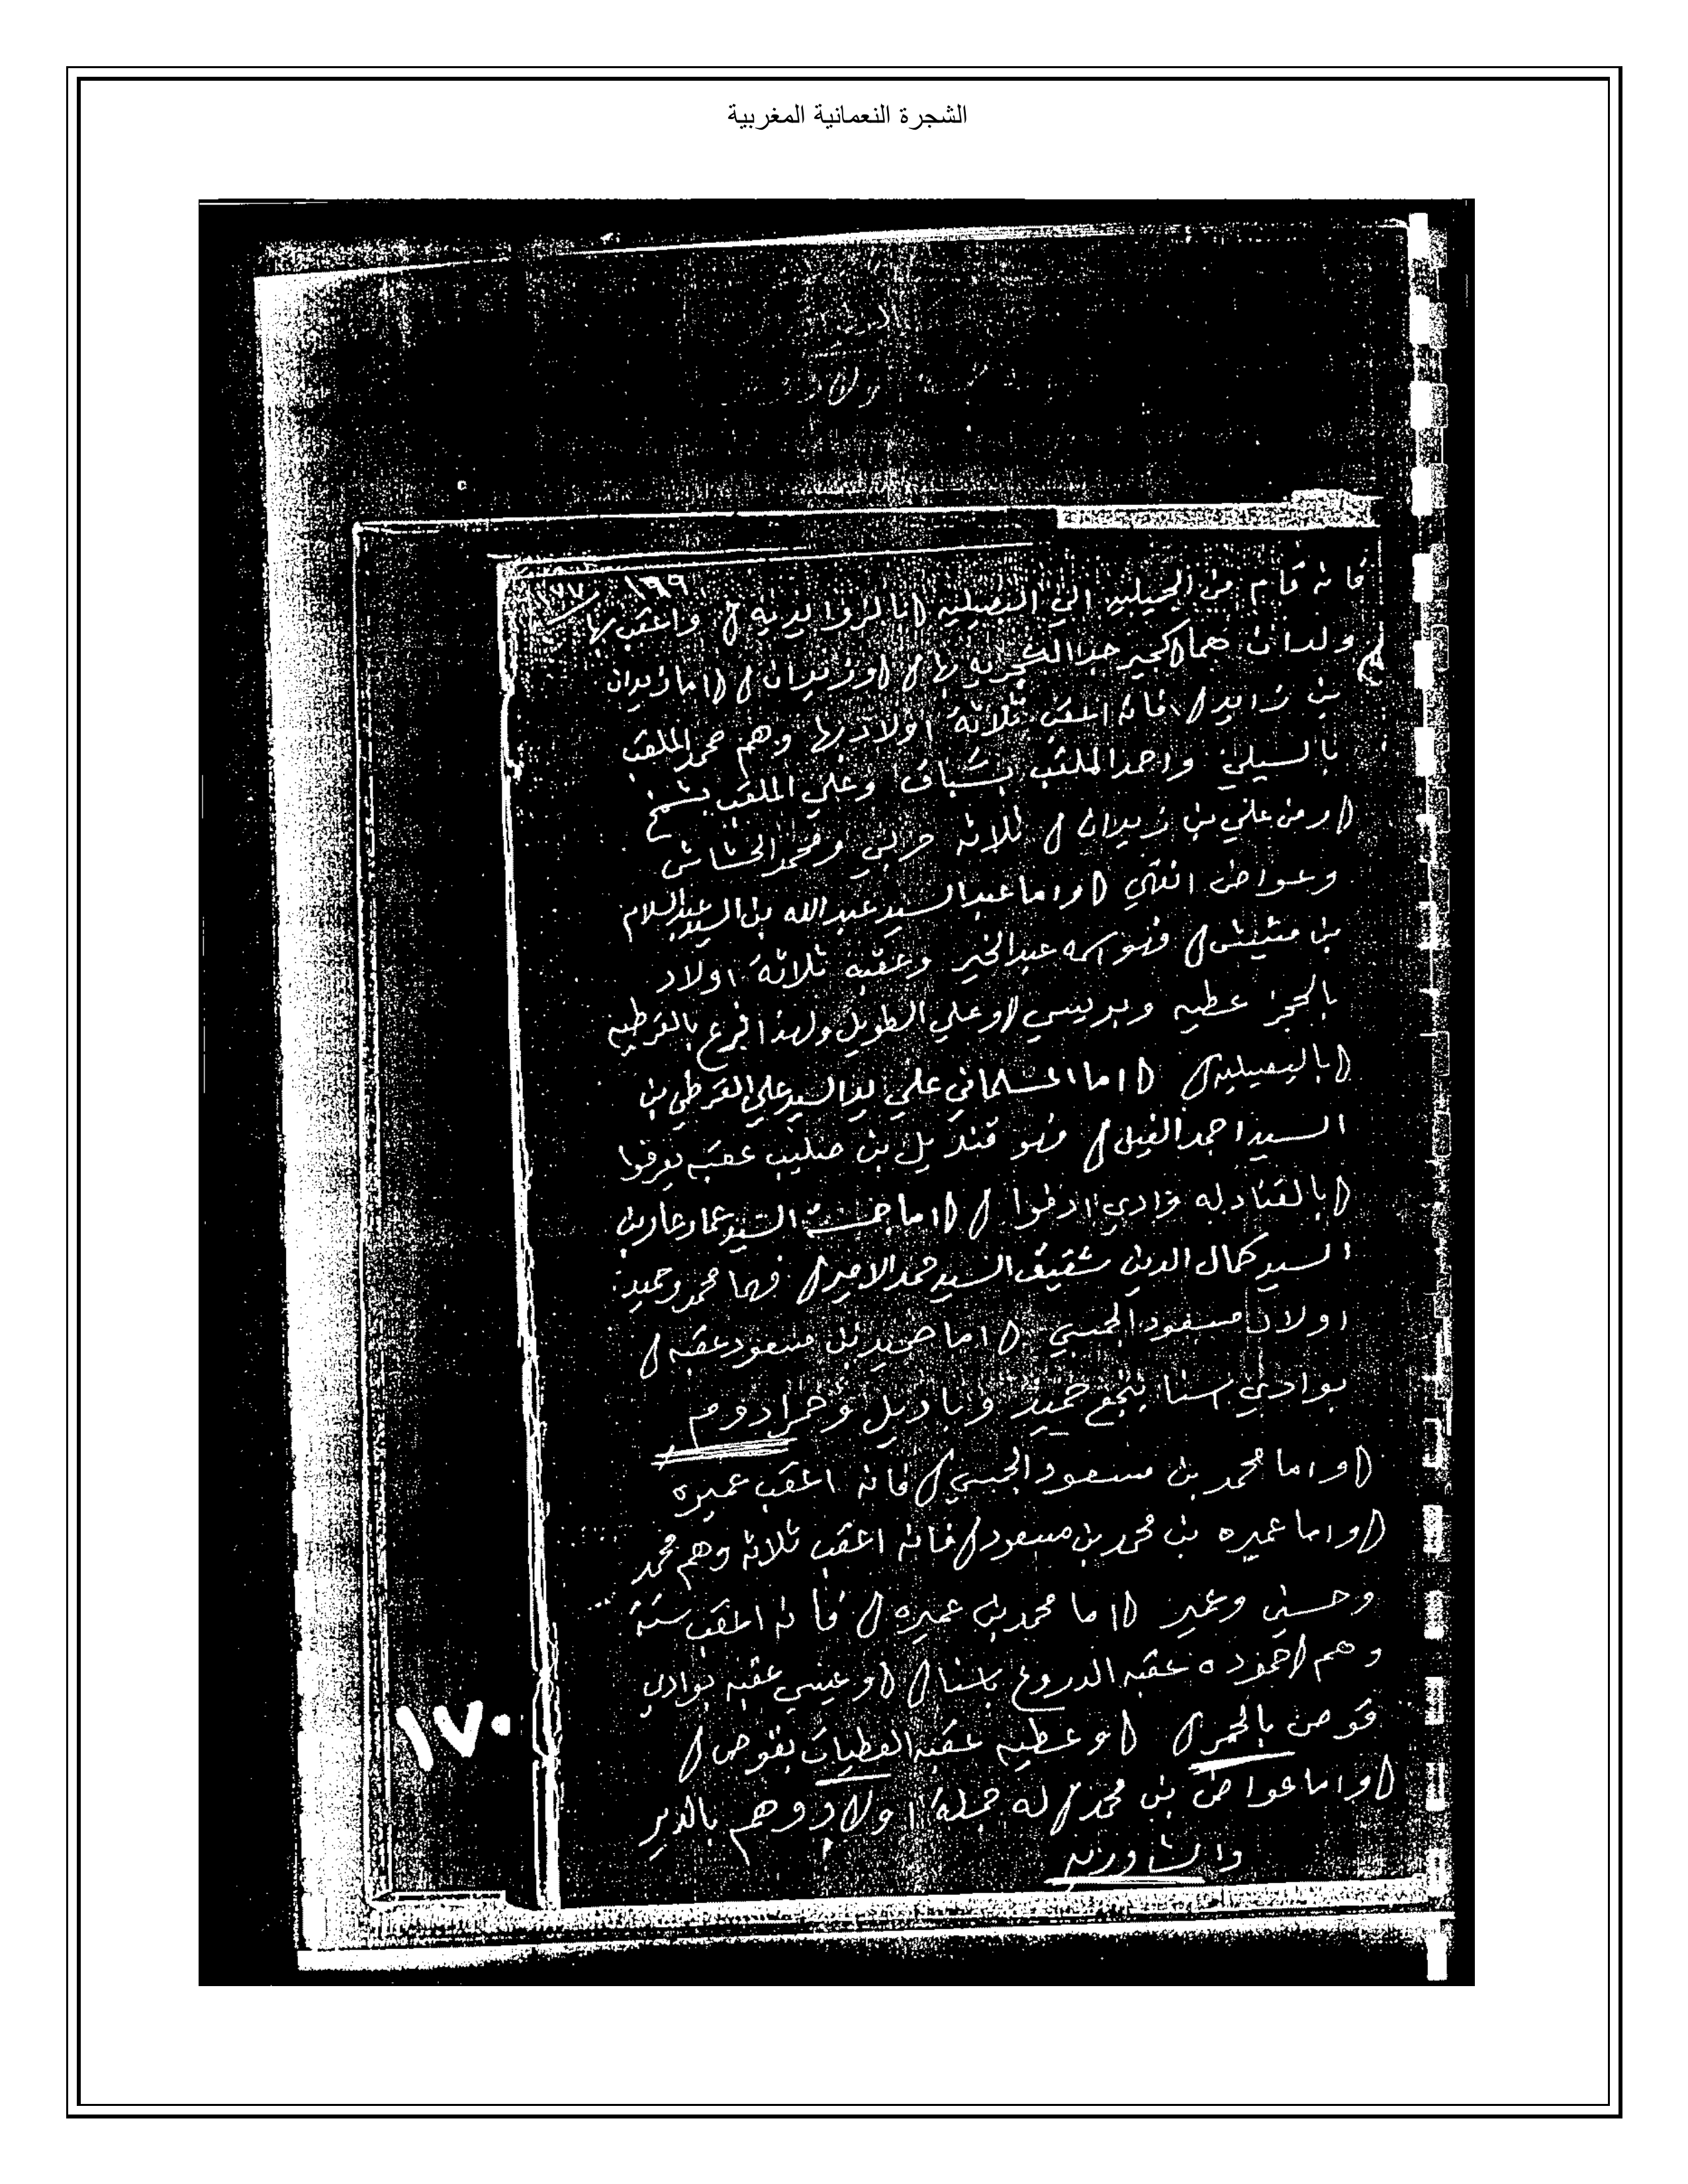 الشجرة النعمانية المغربية
١٦٩
١٧٧
فانه قام من الجميليه الي البصيليه بالزوايديه واعقب بها
ولدان هما جد بها وزيدان اما زيدان
بن زايد فانه اعقب ثلاثة اولاد بها وهم محمد الملقب
بالسيلي واحمد الملقب بسباق وعلي الملقب
ومن علي بن زيدان ثلاثه حربي ومحمد الخشاش
وعواض انتهي واما عبد السيد عبدالله بن السيد عبدالسلام
بن مشيش فهو اسمه عبدالخير وعقبه ثلاثة اولاد
بالحجز عطيه وبريسي وعلي الطويل ولهذا فرع بالقرطيه
بالبصيليه اما علي يد السيد علي القرظي بن
السيد احمد الفيل فهو قنديل بن صليب عقبه يعرفوا
بالقنادله بوادي ادفوا اما السيد عمار عار بن
السيد كمال الدين شقيق السيد حمد الامير فهما محمد وحميد
اولاد مسعود الحبسي اما حميد بن مسعود عقبه
بوادي اسنا بنجع حميد
واما محمد بن مسعود الحبسي فانه اعقب عميره
واما عميره بن محمد بن مسعود فانه اعقب ثلاثه وهم محمد
وحسين وعمير اما محمد بن عميره فانه اعقب ستة
وهم حموده عقبه الدروع باسنا وعيسي عقبه بوادي
قوص بالحمر وعطيه عقبه العطيات بقوص
واما عواض بن محمد له جملة اولاد وهم بالدير
والشاورنه
١٧٠